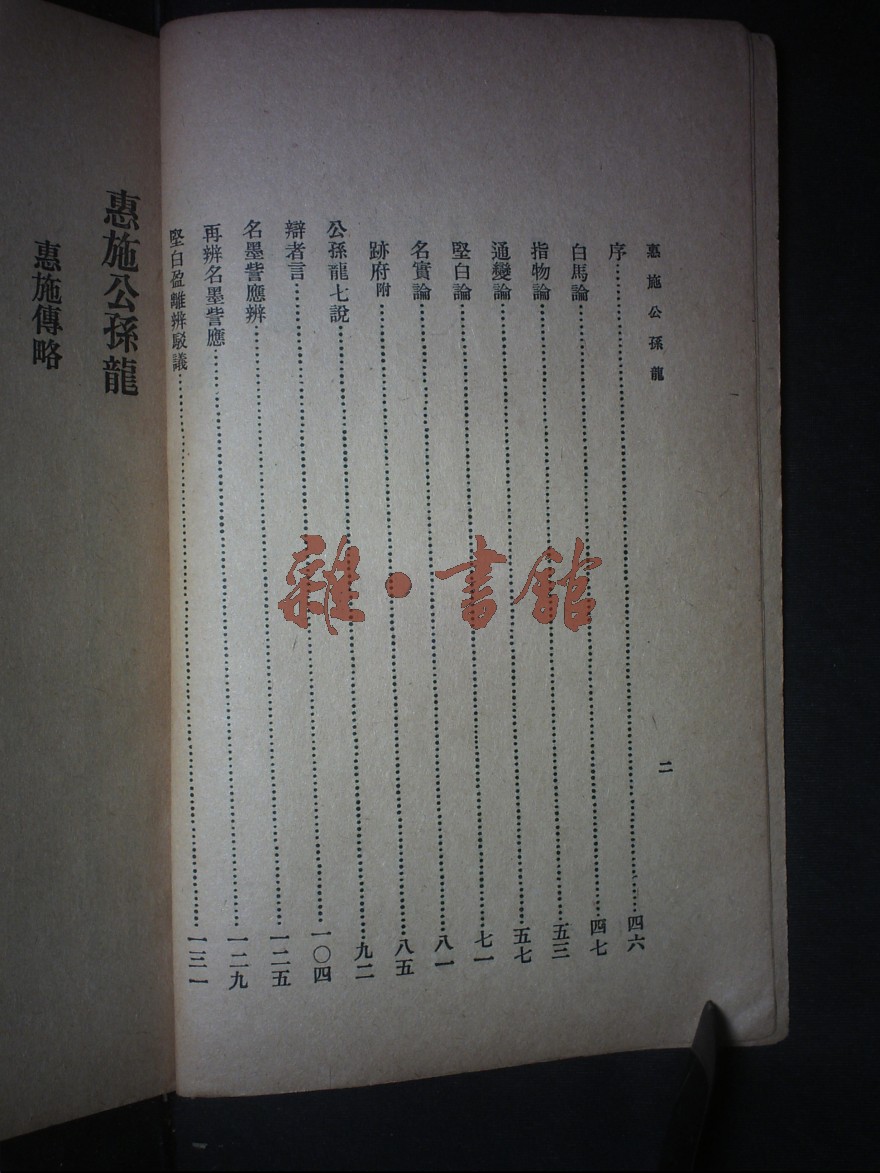 惠施公孫龍
二
序……四六
白馬論……四七
指物論……五三
通變論……五七
堅白論……七一
名實論……八一
跡府附……八五
公孫龍七說……九二
辯者言……一〇四
名墨訾應辨……一二五
再辨名墨訾應……一二九
堅白盈離辨駁議……一三一
惠施公孫龍
惠施傳略
雜·書館